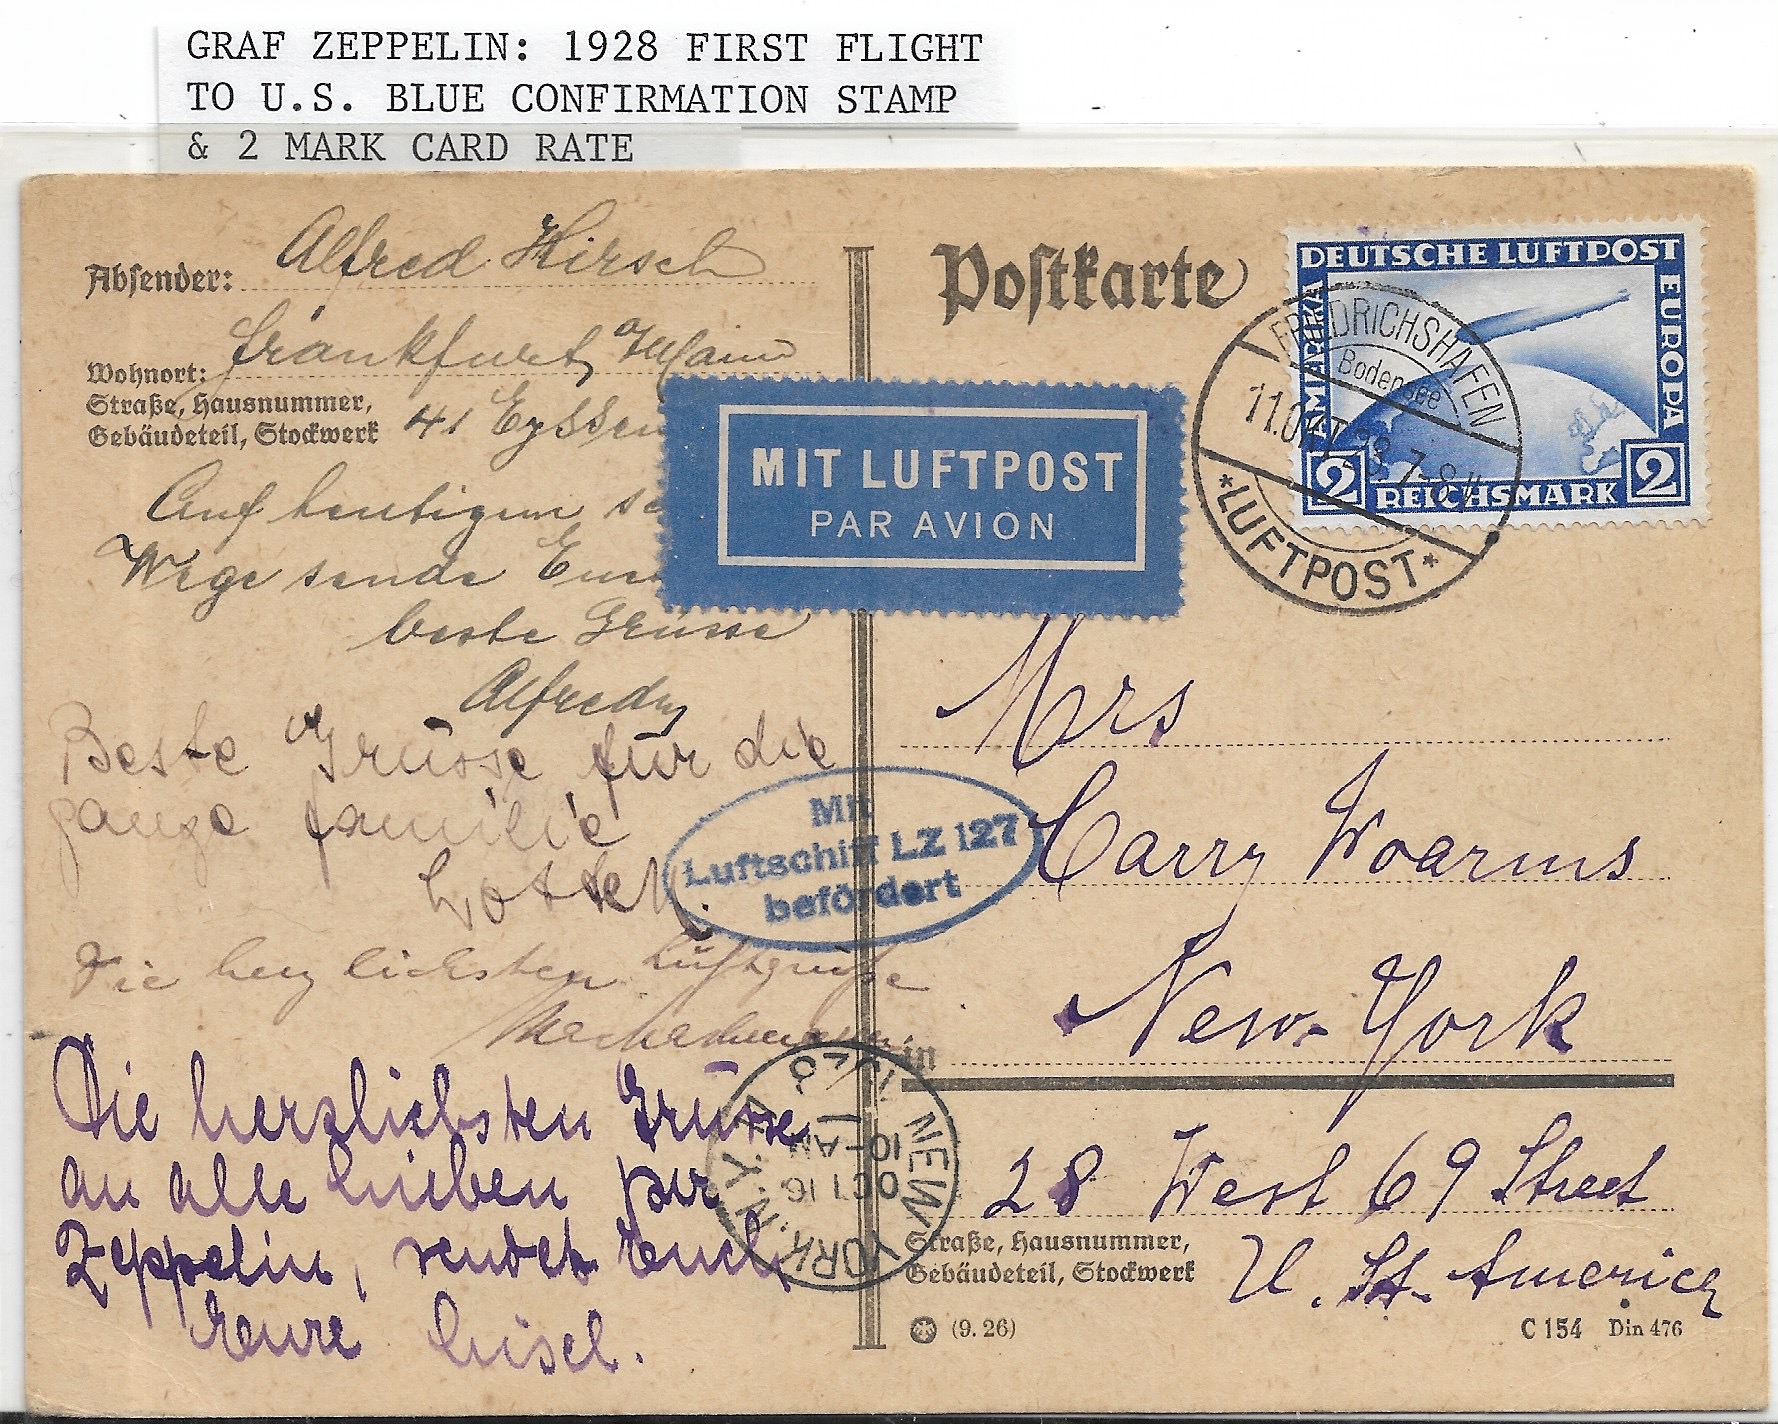 GRAF ZEPPELIN: 1928 FIRST FLIGHT
TO U.S. BLUE CONFIRMATION STAMP
& 2 MARK CARD RATE
Absender: Alfred Hirsch
Frankfurt a/Main
Wohnort:
Straße, Hausnummer,
Gebäudeteil, Stockwerk
41
Auf heutigem
Wege sende
beste Grüsse
Alfred
Beste Grüsse für die
ganze Familie
Die herzlichsten Luftgrüße
Die herzlichsten Grüsse
an alle Lieben per
Zeppelin, sendet Euch
Eure Liesel.
Postkarte
DEUTSCHE LUFTPOST
AMERIKA
EUROPA
2 REICHSMARK 2
FRIEDRICHSHAFEN
Bodensee
11.OKT.28.7-8
*LUFTPOST*
MIT LUFTPOST
PAR AVION
Mit
Luftschiff LZ 127
befördert
Mrs
Carry Woarms
New-York
in
28 West 69 Street
Straße, Hausnummer,
Gebäudeteil, Stockwerk
U. St. America
(9. 26)
C 154 Din 476
NEW YORK, N.Y.
OCT 16
10-AM